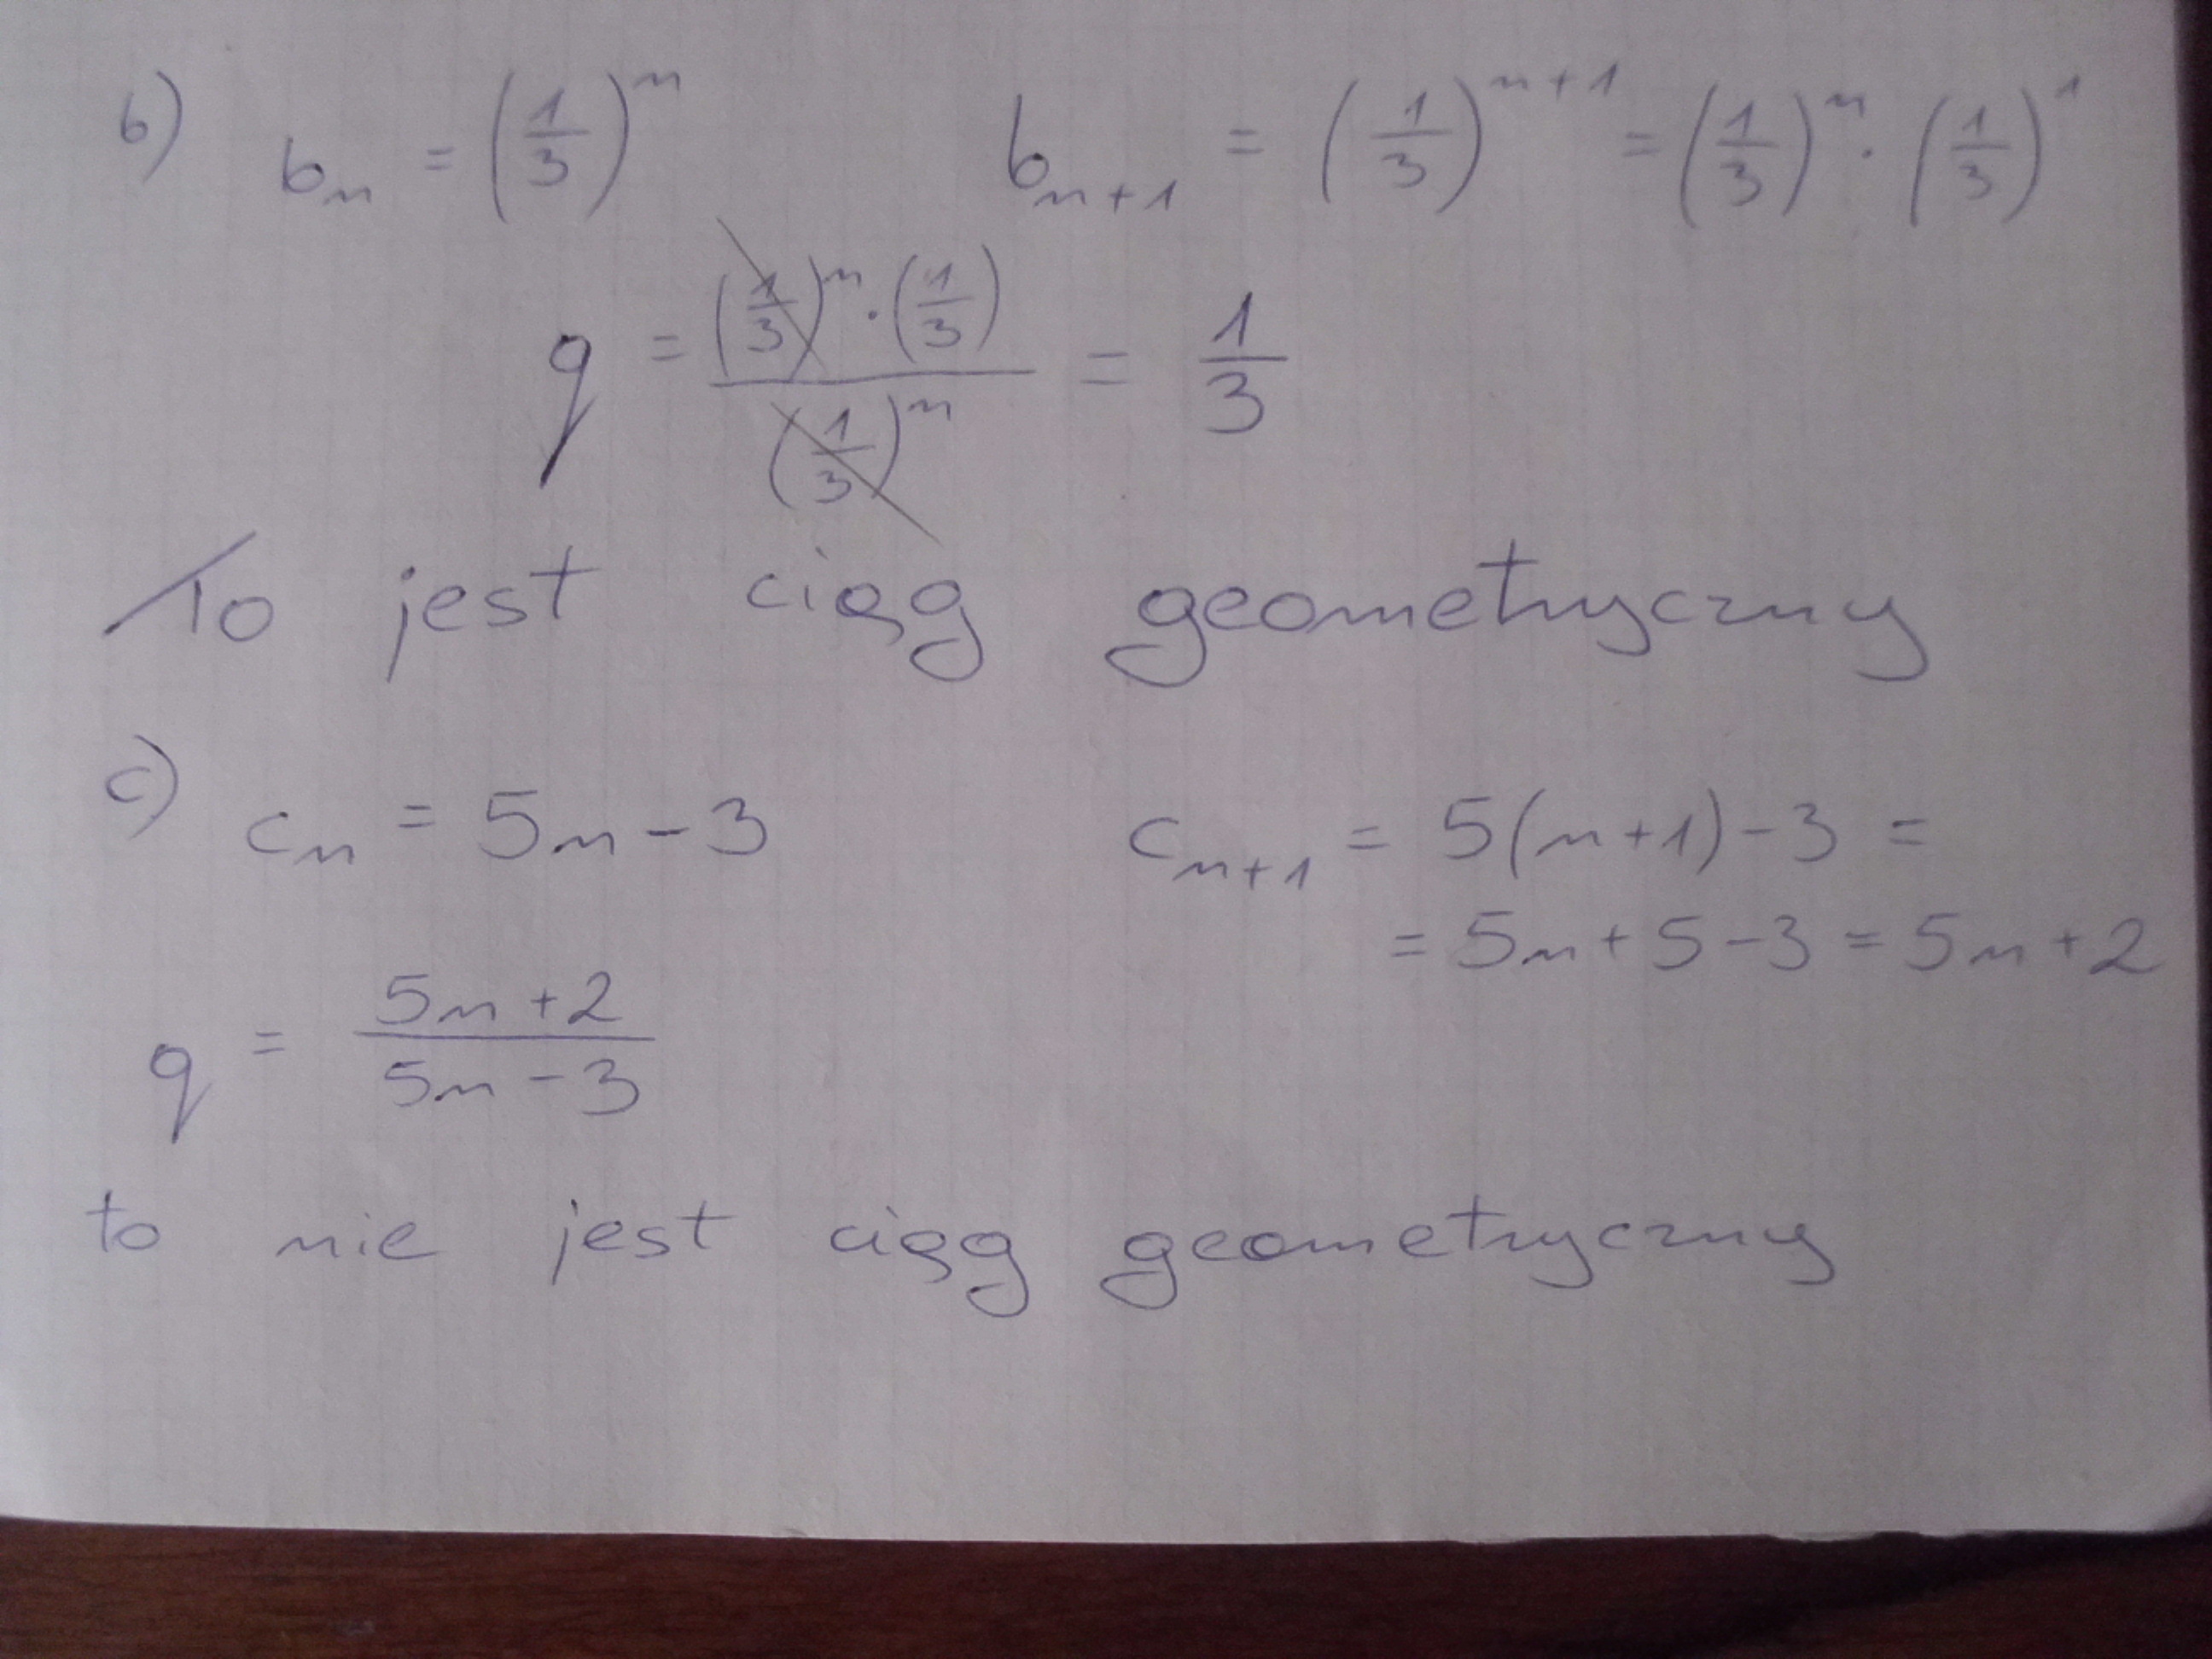 b) bₙ = (1/3)ⁿ bₙ₊₁ = (1/3)ⁿ⁺¹ = (1/3)ⁿ · (1/3)¹
q = ((1/3)ⁿ · (1/3)) / (1/3)ⁿ = 1/3
To jest ciąg geometryczny
c) cₙ = 5n - 3 cₙ₊₁ = 5(n+1) - 3 =
= 5n + 5 - 3 = 5n + 2
q = (5n + 2) / (5n - 3)
to nie jest ciąg geometryczny